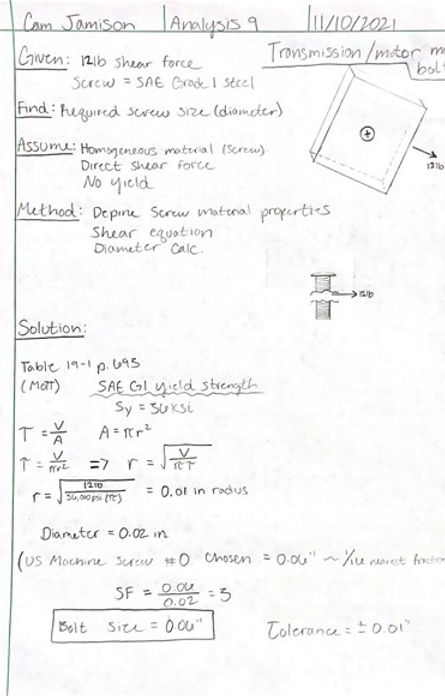 Cam Jamison Analysis 9 11/10/2021
Given: 12lb shear force
Screw = SAE Grade 1 steel
Transmission/motor
bolt
Find: Required screw size (diameter)
Assume: Homogeneous material (screw)
Direct shear force
No yield
12lb
Method: Define screw material properties
Shear equation
Diameter calc.
12lb
Solution:
Table 19-1 p.693
(Mott) SAE G1 yield strength
Sy = 36 ksi
T = V/A A = πr²
T = V/πr² => r = √(V/πT)
r = √(12lb/36,000psi(π)) = 0.01 in radus
Diameter = 0.02 in
(US Machine Screw #0 chosen = 0.06" ~ 1/16 nearest
SF = 0.06/0.02 = 3
Bolt size = 0.06" Tolerance = ± 0.01"